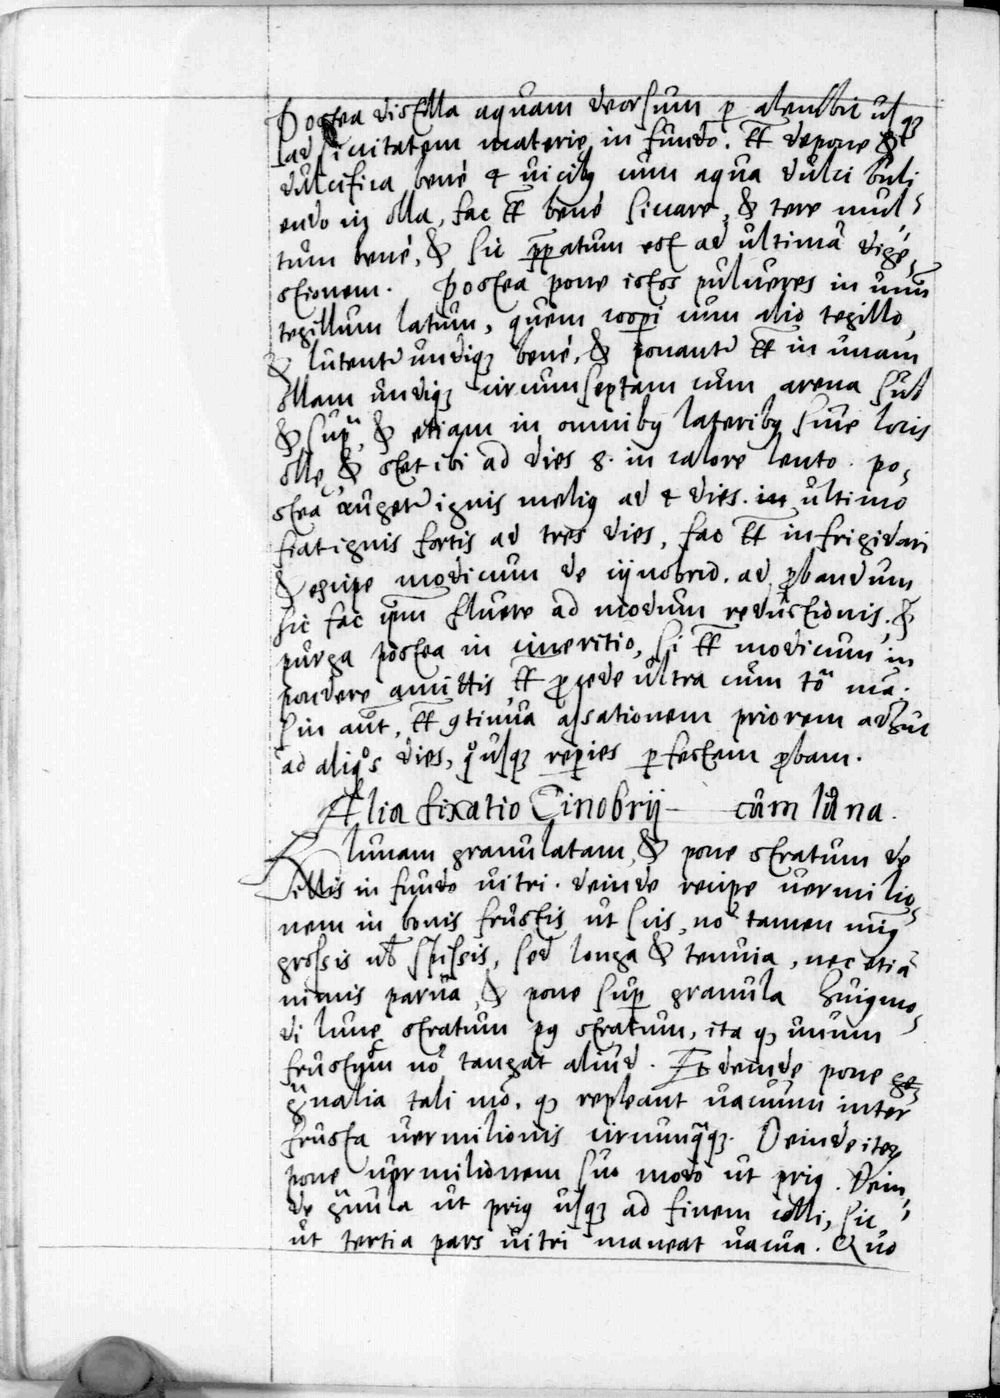 Postea distilla aquam deorsum p alembic usqȝ
ad sicitatem materie in fundo. tt depone &
dulcifica bené 4 vicibȝ cum aqua dulci buli
endo in olla, fac tt bené siccare, & tere mul-
tum bené, & sic ppatum est ad ultimā dige-
stionem. Postea pone istos pulveres in unū
tegillum latum, quem coopi cum alio tegillo,
& lutent undiqȝ bené, & ponant tt in unam
ollam undiqȝ circumseptam cum arena sub
& sup, & etiam in omnibȝ lateribȝ sive locis
olle, & stet ibi ad dies 8. in calore lento. po-
stea augetr ignis meliȝ ad 4 dies. in ultimo
fiat ignis fortis ad tres dies, fac tt infrigidari
& excipe modicum de cynobrio. ad pbandum
sic fac ipm fluere ad modum reductionis. &
purga postea in cineritio, si tt modicum in
pondere amittis tt pcede ultra cum tō mā.
Sin aut, tt 9tinua assationem priorem adhuc
ad aliqos dies, qousqȝ repies pfectam pbam.
Alia fixatio Cinobrij cum luna.
lunam granulatam, & pone stratum de
illis in fundo vitri. deinde recipe vermilio-
nem in bonis frustis ut scis, nō tamen nimȝ
grossis vl spissis, sed longa & tenuia, nec etiā
nimis parva, & pone sup granula huiȝmo-
di lune stratum pȝ stratum, ita qȝ unum
frustum nō tangat aliud. Et deinde pone ge-
gnalia tali mō. qȝ repleant vacuum inter
frusta vermilionis circumqȝqȝ. Deinde iteȝ
pone vermilionem suo modo ut priȝ. Dein-
de gnula ut priȝ usqȝ ad finem colli, sic
ut tertia pars vitri maneat vacua. Quo